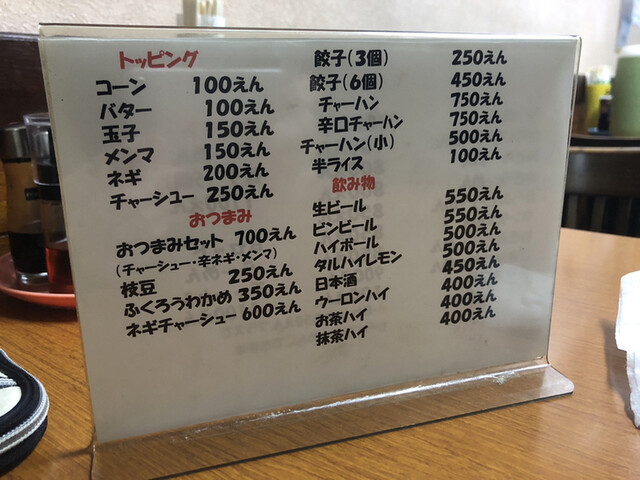 トッピング
コーン 100えん
バター 100えん
玉子 150えん
メンマ 150えん
ネギ 200えん
チャーシュー 250えん
おつまみ
おつまみセット 700えん
(チャーシュー・辛ネギ・メンマ)
枝豆 250えん
ふくろうわかめ 350えん
ネギチャーシュー 600えん
餃子(3個) 250えん
餃子(6個) 450えん
チャーハン 750えん
辛口チャーハン 750えん
チャーハン(小) 500えん
半ライス 100えん
飲み物
生ビール 550えん
ビンビール 550えん
ハイボール 500えん
タルハイレモン 500えん
日本酒 450えん
ウーロンハイ 400えん
お茶ハイ 400えん
抹茶ハイ 400えん